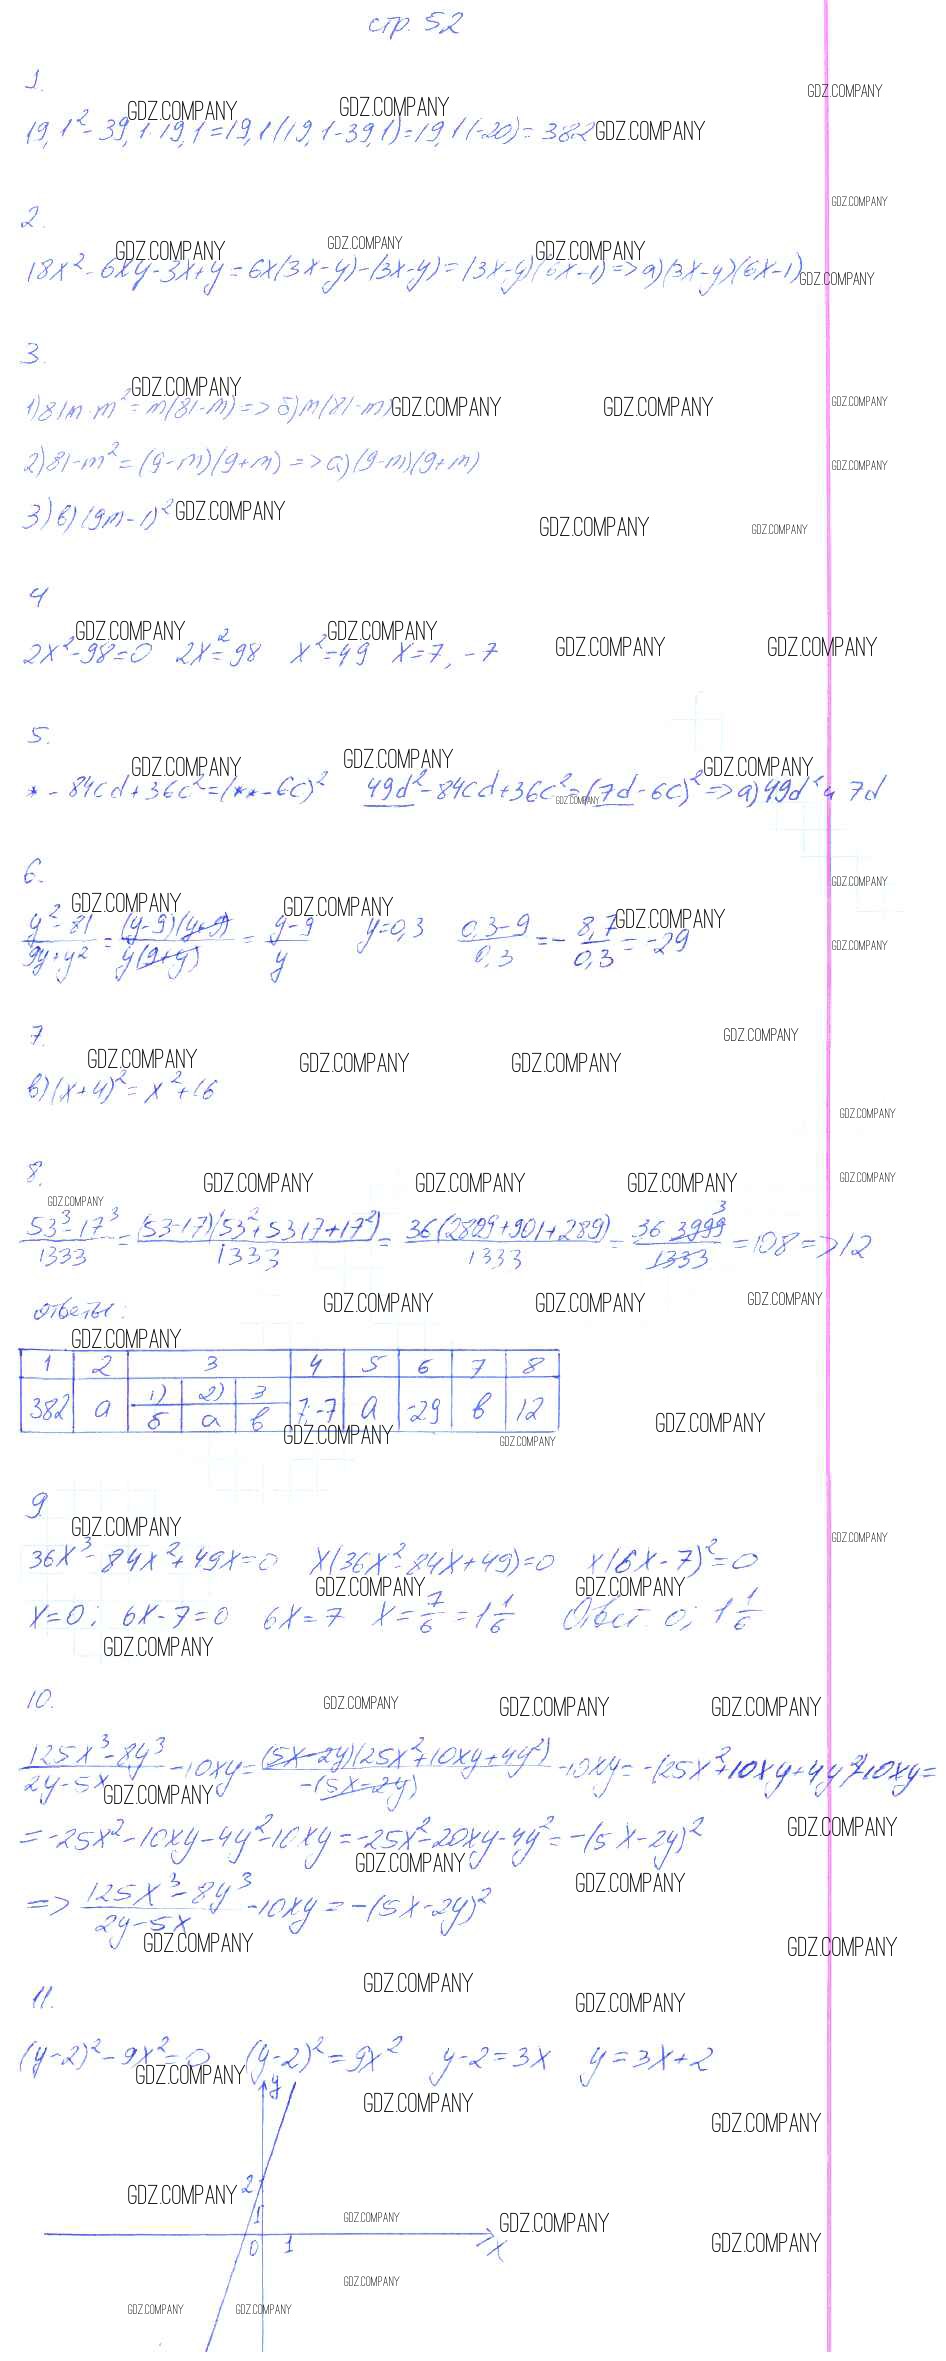 стр. 52
1.
19,1² - 39,1·19,1 = 19,1(19,1-39,1) = 19,1(-20) = 382
2.
18x² - 6xy - 3x + y = 6x(3x-y) - (3x-y) = (3x-y)(6x-1) => а) (3x-y)(6x-1)
3.
1) 81m - m² = m(81-m) => б) m(81-m)
2) 81-m² = (9-m)(9+m) => а) (9-m)(9+m)
3) в) (9m-1)²
4
2x²-98=0 2x²=98 x²=49 x=7, -7
5.
* - 84cd + 36c² = (** - 6c)² 49d² - 84cd + 36c² = (7d - 6c)² => а) 49d² и 7d
6.
y²-81/9y+y² = (y-9)(y+9)/y(9+y) = y-9/y y=0,3 0,3-9/0,3 = -8,7/0,3 = -29
7.
в) (x+4)² = x²+16
8.
53³-17³/1333 = (53-17)(53²+53·17+17²)/1333 = 36(2809+901+289)/1333 = 36·3999³/1333 = 108 => 12
ответы:
1 2 3 4 5 6 7 8
1) 2) 3
382 а б а в 7; -7 а -29 в 12
9
36x³ - 84x² + 49x = 0 x(36x² - 84x + 49) = 0 x(6x-7)² = 0
x=0; 6x-7=0 6x=7 x=7/6=1 1/6 Ответ: 0; 1 1/6
10.
125x³-8y³/2y-5x - 10xy = (5x-2y)(25x²+10xy+4y²)/-(5x-2y) - 10xy = -(25x²+10xy+4y²)-10xy =
= -25x²-10xy-4y²-10xy = -25x²-20xy-4y² = -(5x-2y)²
=> 125x³-8y³/2y-5x - 10xy = -(5x-2y)²
11.
(y-2)² - 9x² = 0 (y-2)² = 9x² y-2=3x y=3x+2
y
2
1
0 1 x
GDZ.COMPANY